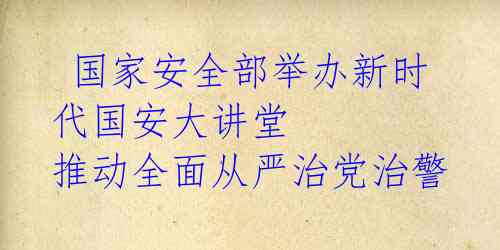 国家安全部举办新时
代国安大讲堂
推动全面从严治党治警